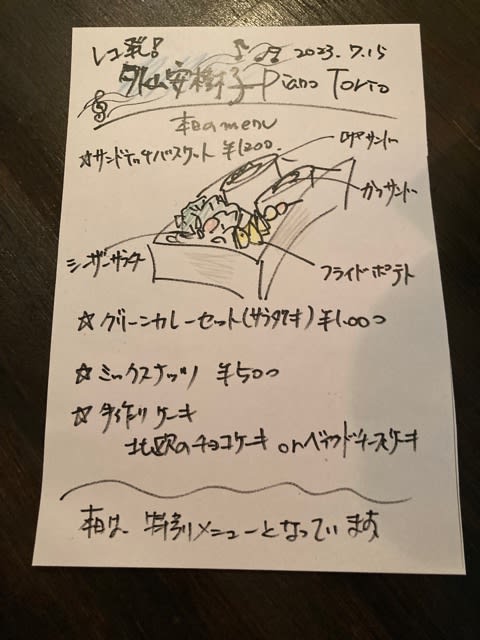 レコ発! 2023.7.15
外山安樹子 Piano Torio
本日のmenu
☆サンドイッチバスケット ¥1200.
ロースサンド
カツサンド
シーザーサラダ
フライドポテト
☆グリーンカレーセット(サラダ付き) ¥1,000
☆ミックスナッツ ¥500
☆手作りケーキ
北欧のチョコケーキ orベイクドチーズケーキ
本日は、特別メニューとなっています